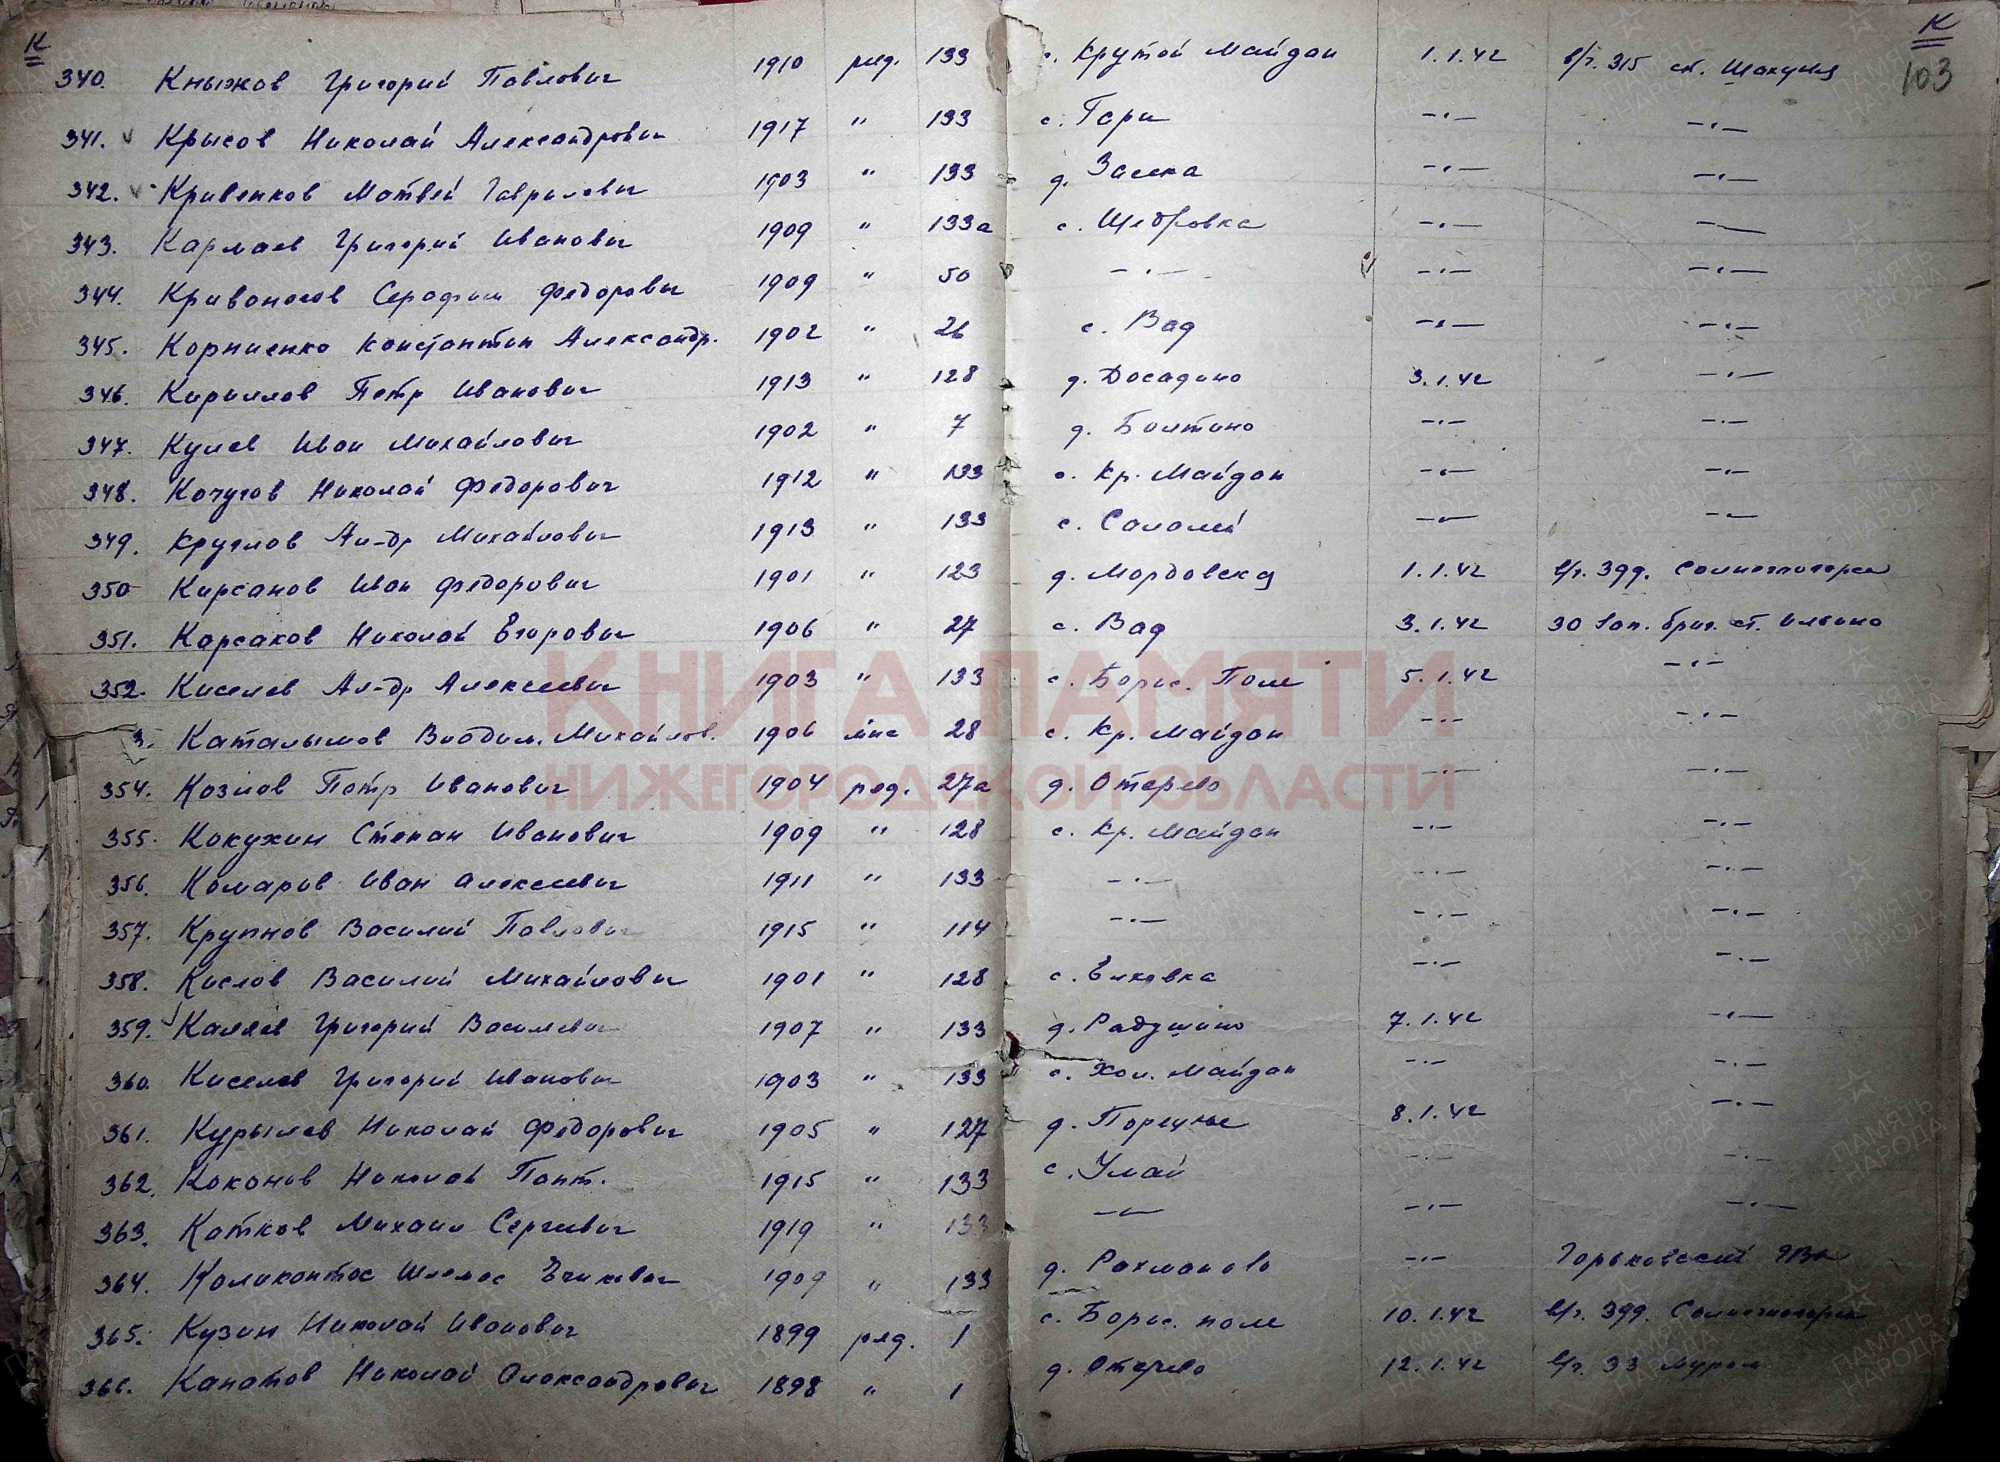 К К
103
340. Кныжов Григорий Павлович 1910 ряд. 133 с. Крутой Майдан 1.1.42 в/ч. 315 ст. Шакуния
341. Крысов Николай Александрович 1917 " 133 с. Гари —·— —·—
342. Кривенков Матвей Гаврилович 1903 " 133 д. Засека —·— —·—
343. Кармаев Григорий Иванович 1909 " 133а с. Щедровка —·— —·—
344. Кривоногов Серафим Федорович 1909 " 50 —·— —·— —·—
345. Корниенко Константин Александр. 1902 " 26 с. Вад —·— —·—
346. Кириллов Петр Иванович 1913 " 128 д. Досадино 3.1.42 —·—
347. Кулев Иван Михайлович 1902 " 7 д. Болтино —·— —·—
348. Кочугов Николай Федорович 1912 " 133 с. Кр. Майдан —·— —·—
349. Круглов Ал-др Михайлович 1913 " 133 с. Салалей —·— —·—
350 Кирсанов Иван Федорович 1901 " 123 д. Мордовска 1.1.42 в/ч. 399. Солнечногорск
351. Корсаков Николай Егорович 1906 " 27 с. Вад 3.1.42 30 зап. бриг. ст. Ильино
352. Киселев Ал-др Алексеевич 1903 " 133 с. Борис. Поле 5.1.42 —·—
3. Каталымов Владим. Михайлов. 1906 мнс 28 с. Кр. Майдан —·— —·—
354. Козлов Петр Иванович 1904 ряд. 27а д. Отерево —·— —·—
355. Кокухин Степан Иванович 1909 " 128 с. Кр. Майдан —·— —·—
356. Комаров Иван Алексеевич 1911 " 133 —·— —·— —·—
357. Крупнов Василий Павлович 1915 " 114 —·— —·— —·—
358. Кислов Василий Михайлович 1901 " 128 с. Елховка —·— —·—
359. Каляев Григорий Васильевич 1907 " 133 д. Радушино 7.1.42 —·—
360. Киселев Григорий Иванович 1903 " 133 с. Хол. Майдан —·— —·—
361. Курылев Николай Федорович 1905 " 127 д. Порецкое 8.1.42 —·—
362. Коконов Николай Пант. 1915 " 133 с. Умай —·— —·—
363. Катков Михаил Сергеевич 1919 " 133 —·— —·— —·—
364. 1909 " 133 д. Рахманово —·— Горьковский
365. Кузин Николай Иванович 1899 ряд. 1 с. Борис. поле 10.1.42 в/ч. 399. Солнечногорск
366. Канатов Николай Александрович 1898 " 1 д. Отерево 12.1.42 в/ч. 33 Муром
КНИГА ПАМЯТИ
НИЖЕГОРОДСКОЙ ОБЛАСТИ
ПАМЯТЬ НАРОДА